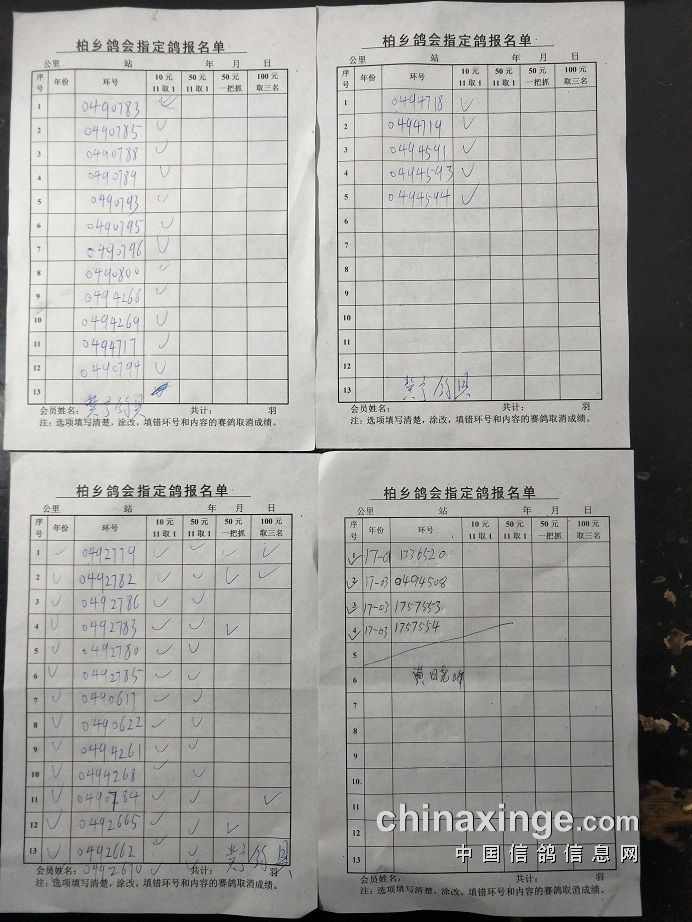 柏乡鸽会指定鸽报名单
公里 站 年 月 日
序号 年份 环号 10元 11取1 50元 11取1 50元 一把抓 100元 取三名
1 0490783 ✓
2 0490785 ✓
3 0490788 ✓
4 0490789 ✓
5 0490793 ✓
6 0490795 ✓
7 0490796 ✓
8 0490800 ✓
9 0494266 ✓
10 0494269 ✓
11 0494717 ✓
12 0490794 ✓
13
会员姓名： 共计： 羽
注：选项填写清楚，涂改，填错环号和内容的赛鸽取消成绩。
柏乡鸽会指定鸽报名单
公里 站 年 月 日
序号 年份 环号 10元 11取1 50元 11取1 50元 一把抓 100元 取三名
1 0494718 ✓
2 0494719 ✓
3 0494591 ✓
4 0494593 ✓
5 0494594 ✓
6
7
8
9
10
11
12
13
会员姓名： 共计： 羽
注：选项填写清楚，涂改，填错环号和内容的赛鸽取消成绩。
柏乡鸽会指定鸽报名单
公里 站 年 月 日
序号 年份 环号 10元 11取1 50元 11取1 50元 一把抓 100元 取三名
1 ✓ 0492779 ✓ ✓ ✓
2 ✓ 0492782 ✓ ✓ ✓ ✓
3 ✓ 0492786 ✓ ✓
4 ✓ 0492783 ✓ ✓ ✓
5 ✓ 0492780 ✓ ✓
6 ✓ 0492785 ✓ ✓
7 ✓ 0490617 ✓ ✓
8 ✓ 0490622 ✓ ✓
9 ✓ 0494261 ✓ ✓
10 ✓ 0494268 ✓ ✓
11 ✓ 0490784 ✓ ✓ ✓
12 ✓ 0492665 ✓ ✓ ✓
13 ✓ 0492662 ✓ ✓
会员姓名： 0492670 共计： 羽
注：选项填写清楚，涂改，填错环号和内容的赛鸽取消成绩。
柏乡鸽会指定鸽报名单
公里 站 年 月 日
序号 年份 环号 10元 11取1 50元 11取1 50元 一把抓 100元 取三名
1 17-01 1336520
2 17-03 0494508
3 17-03 1757553
4 17-03 1757554
5
6
7
8
9
10.
11
12
13
会员姓名： 共计： 羽
注：选项填写清楚，涂改，填错环号和内容的赛鸽取消成绩。
chinaxinge.com
中国信鸽信息网